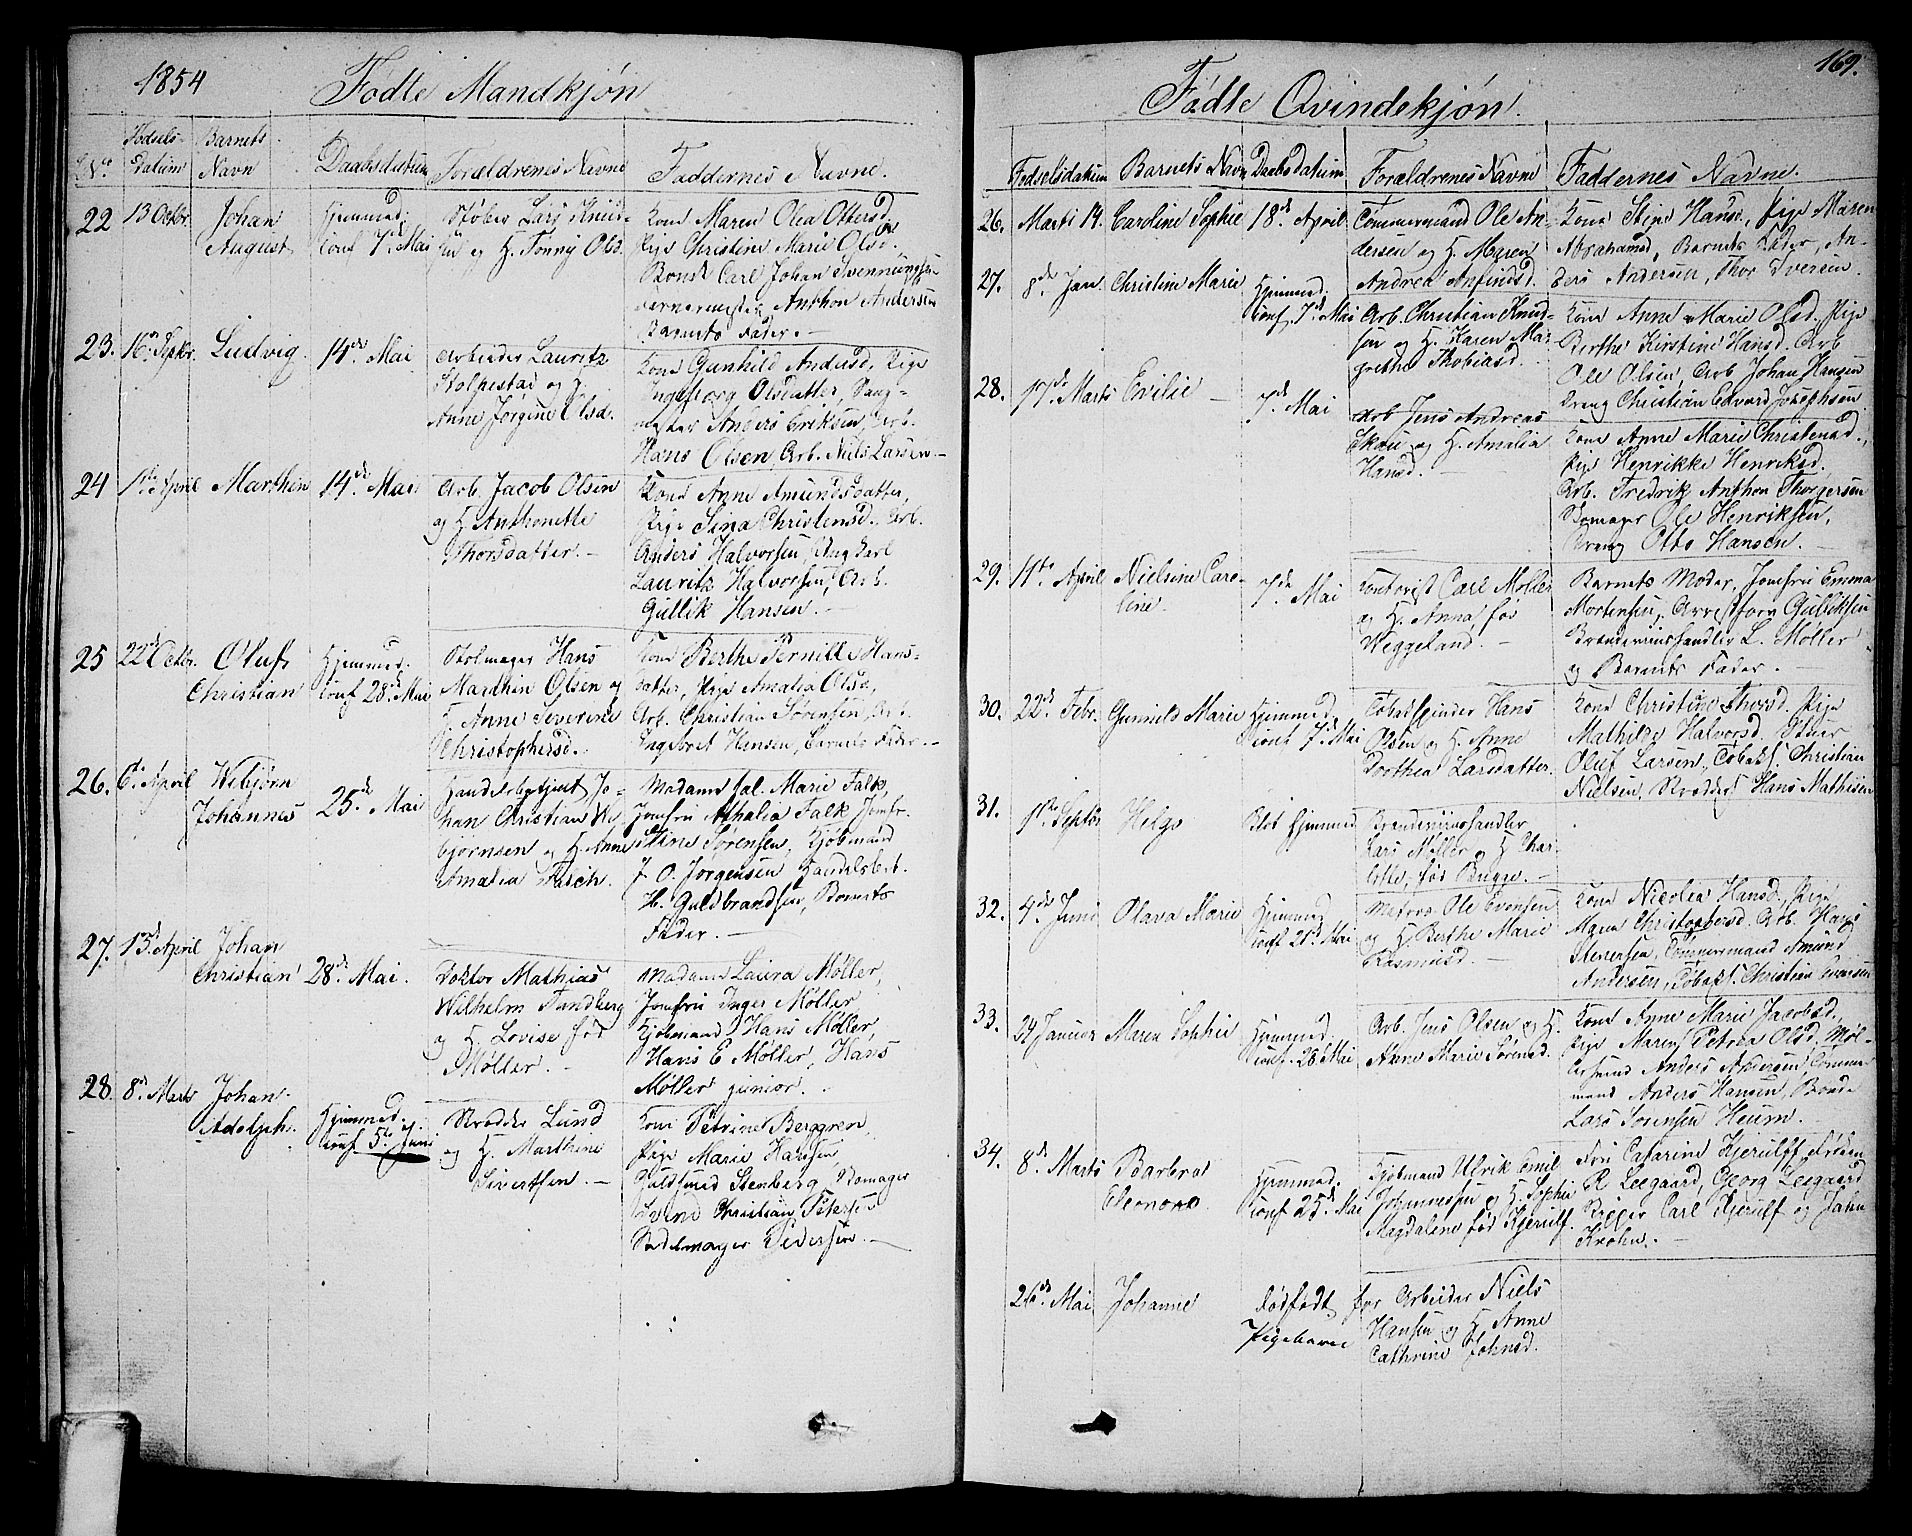 1854
Fødte Mandkjøn
No
Fødsels-
Datum
Barnets
Navn
Daabsdatum
Forældrenes Navne
Faddernes Navne.
22
13 Octbr.
Johan
August
Hjemmed.
conf 7de Mai
Støber Lars
og H. Tonny Olsd.
Kone Maren Olea Ottersd.
Pige Christine Marie Olsd.
Bonde Carl Johan Svennungsen
Anthon Andersen
Barnets Fader.
23.
Ludvig
14de Mai
Arbeider Lauritz
Stolpestad og H.
Anne Jørgine Olsd.
Kone Gunhild Andersd, Pige
Ingeborg Olsdatter,
Anders Eriksen, Arb.
Hans Olsen, Arb. Niels Larsen
24
1ste April
Marthin
14de Mai
Arb. Jacob Olsen
og H. Anthonette
Thorsdatter.
Kone Anne Amundsdatter,
Pige Sina Christensd., Arb.
Anders Halvorsen, Ungkarl
Lauritz Halvorsen, Arb.
Gullik Hansen.
25
22de Octbr.
Oluf
Christian
Hjemmed.
conf 28de Mai
Stolmager Hans
Marthin Olsen og
H. Anne Severine
Christophersd.
Kone Berthe Pernille Hans-
datter, Pige Amalia Olsd,
Arb. Christian Sørensen, Arb.
Ingebret Hansen, Barnets Fader.
26.
6te April
Webjørn
Johannes
25de Mai
Handelsbetjent Jo-
han Christian We-
bjørnsen og H. Anne
Amalia Falch.
Madame sal. Marie Falk,
Jomfru Athalia Falk, Jomfr.
Stine Sørensen, Kjøbmand
J. O. Jørgensen, Handelsbet.
H. Guldbrandsen, Barnets
Fader.
27.
13de April
Johan
Christian
28de Mai.
Doktor Mathias
Wilhelm Sandberg
og H. Lovise fød
Møller.
Madame Laura Møller,
Jomfru Inger Møller,
Kjøbmand Hans Møller,
Hans E Møller, Hans
Møller junior.
28
8de Marts
Johan
Adolph.
Hjemmed.
conf 5te Juni
Skrædder Lund
og H. Marthine
Sivertsen.
Kone Petrine Berggren,
Pige Marie Hansen,
Guldsmed Stenberg, Skomager
Svend Christian Petersen
Sadelmager Pedersen.
169.
Fødte Qvindekjøn.
Fødselsdatum
Barnets Navn
Daabsdatum
Forældrenes Navne
Faddernes Navne.
26.
Marts 14.
Caroline Sophie
18de April
Tømmermand Ole An-
dersen og H. Maren
Andrea Anfindsd.
Kone Stine Hansd., Pige Maren
Abrahamsd, Barnets Fader, An-
ders Andersen, Thor Iversen.
27.
8de Jan.
Christine Marie
Hjemmed.
conf. 7de Mai
Arb. Christian Knud-
sen og H. Karen Mar-
grethe Thobiasd.
Kone Anne Marie Olsd. Pige
Berthe Kirstine Hansd. Arb
Ole Olsen, Arb Johan Hansen
Dreng Christian Edvard Josephsen
28.
17de Marts
Emilie
7de Mai
Arb Jens Andreas
Skau og H. Amalia
Hansd.
Kone Anne Marie Christensd.,
Pige Henrikke Henriksd.
Arb. Fredrik Anthon Thorgersen
Skomager Ole Henriksen,
Dreng Otto Hansen.
29.
11te April
Nielsine Caro-
line.
7de Mai
Kontorist Carl Møller
og H. Anna, fød
Weggeland.
Barnets Moder, Jomfru Emma
Mortensen, Arrestforv Gulliksen
Brændeviinshandler L. Møller
og Barnets Fader.
30.
22de Febr.
Gunnild Marie
Hjemmed
conf 7de Mai
Tobakspinder Hans
Olsen og H. Anne
Dorthea Larsdatter.
Kone Christine Thorsd. Pige
Mathilde Halvorsd.
Oluf Larsen, Tobaksf. Christian
Nielsen, Skrædder Hans Mathisen
31.
1ste Septbr
Helga
Blot hjemmed
Brændeviinshandler
Lars Møller og H Char-
lotte, fød Bugge.
32.
4de Juni
Olava Marie
Hjemmed
conf 21de Mai
Matros Ole Evensen
og H. Berthe Marie
Rasmusd.
Kone Nicolea Hansd., Pige
Maren Christophersd. Arb. Hans
Stenersen, Tømmermand Amund
Andersen, Tobaksf. Christian Evensen
33.
24 Januar
Maren Sophie
Hjemmed
conf. 28 Mai
Arb. Jens Olsen og H.
Anne Marie Sørensd.
Kone Anne Marie Jacobsd.,
Pige Maren Petrea Olsd, Møl-
lersvend Anders Andersen, Tømmer-
mand Anders Hansen, Bonde
Lars Sørensen Heum.
34.
8de Marts
Barbra
Eleonora.
Hjemmed.
conf 25de Mai
Kjøbmand Ulrik Emil
Johannessen og H. Sophie
Magdalene fød Kjerulf.
Fru Catarine Kjerulff
R Leegaard, Georg Leegaard
Carl Kjerulf og John
Krohn.
26de Mai
Johanne
Dødfødt
Pigebarn
for Arbeider Niels
Hansen og H. Anne
Cathrine Johnsd.